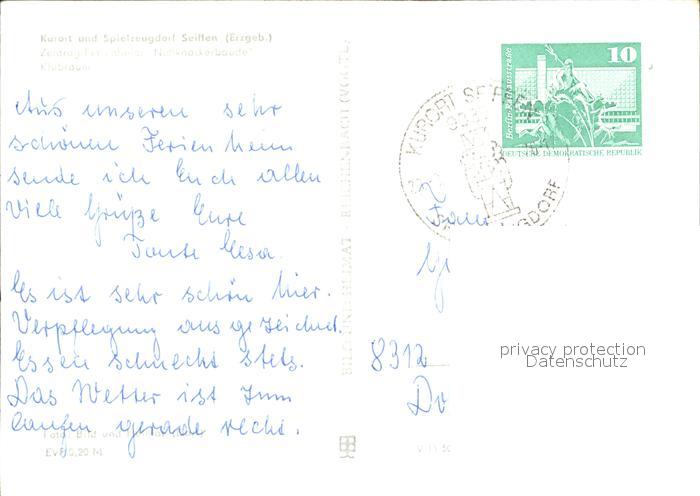 Kurort und Spielzeugdorf Seiffen (Erzgeb.)
Zentrag-Ferienheim "Nußknackerbaude"
Klubraum
Aus unseren sehr
schönen Ferienheim
sende ich Euch allen
viele Grüße Eure
Tante Gesa.
Es ist sehr schön hier.
Verpflegung ausgezeichnet.
Essen schmeckt stets.
Das Wetter ist zum
laufen gerade recht.
Foto: Bild und Heimat
EVP 0,20 M
BILD UND HEIMAT · REICHENBACH (VOGTL)
V 11 50
10
Berlin-Rathausstraße
DEUTSCHE DEMOKRATISCHE REPUBLIK
KURORT SEIFFEN
Fam
8312
Do
privacy protection
Datenschutz